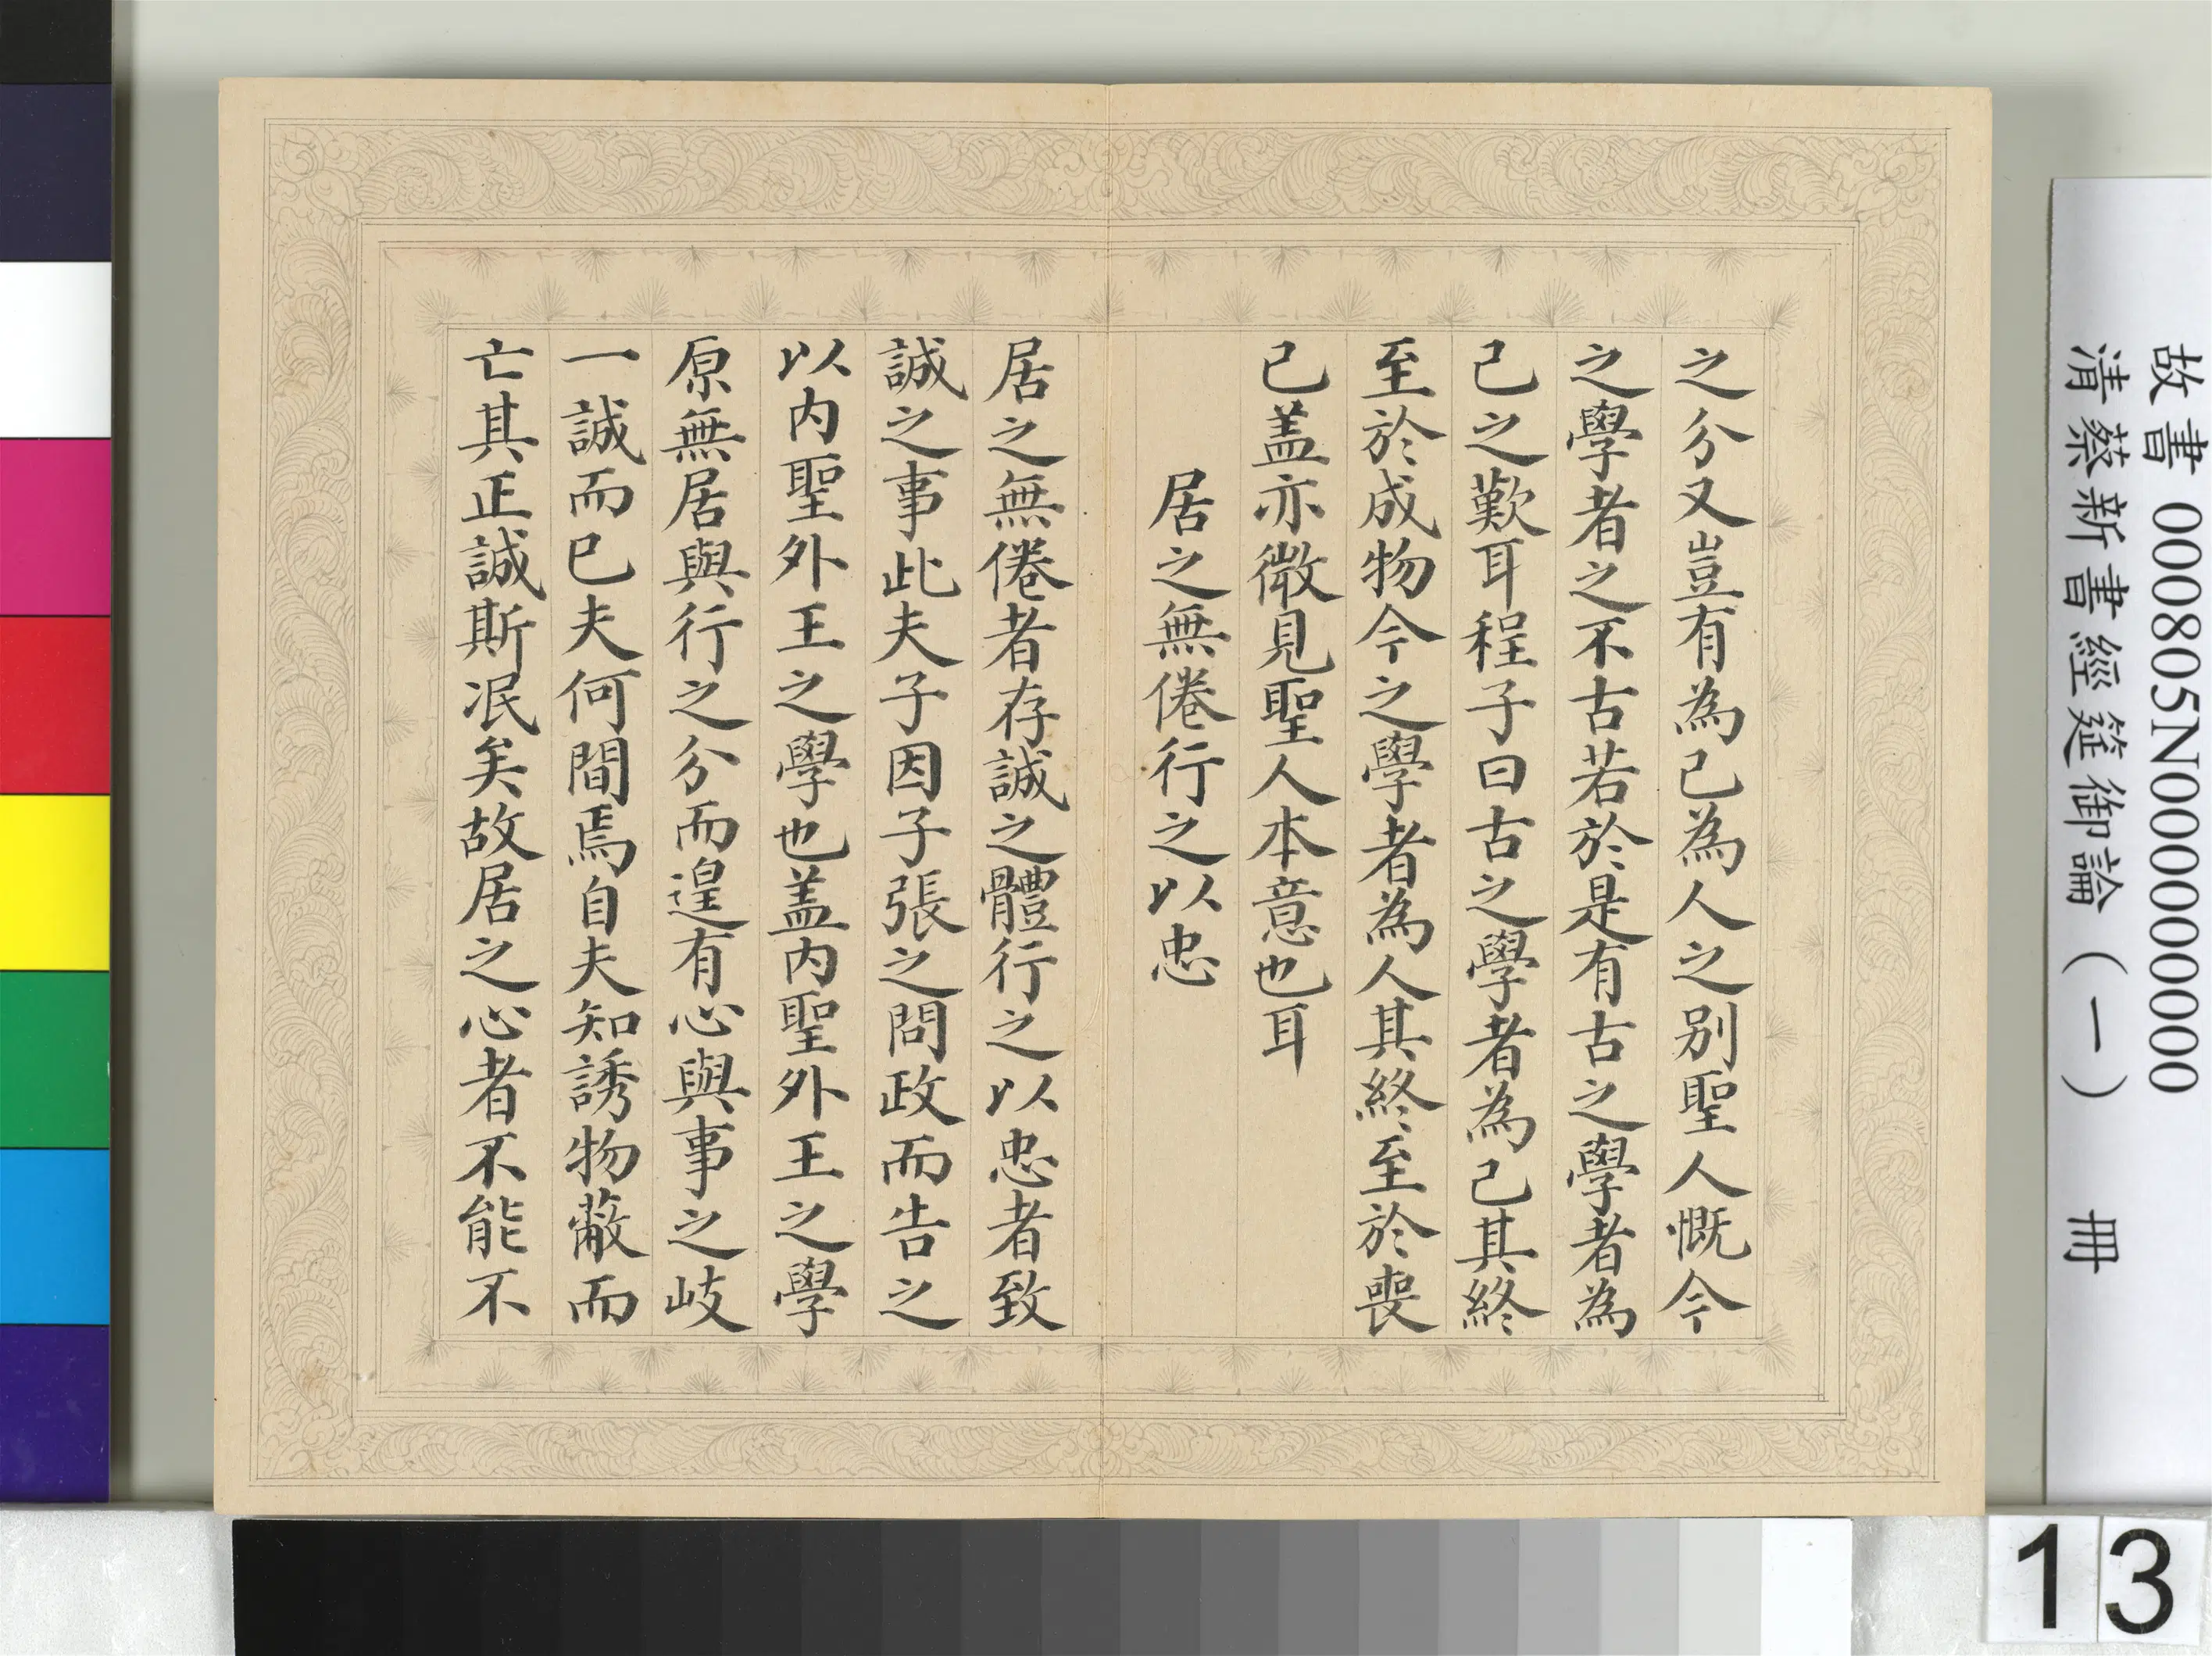 之分又豈有為己為人之別聖人慨今
之學者之不古若於是有古之學者為
己之歎耳程子曰古之學者為己其終
至於成物今之學者為人其終至於喪
己盖亦微見聖人本意也耳
居之無倦行之以忠
居之無倦者存誠之體行之以忠者致
誠之事此夫子因子張之問政而告之
以內聖外王之學也盖內聖外王之學
原無居與行之分而遑有心與事之岐
一誠而已夫何間焉自夫知誘物蔽而
亡其正誠斯泯矣故居之心者不能不
故書 000805N000000000
清蔡新書經筵御論（一） 冊
13